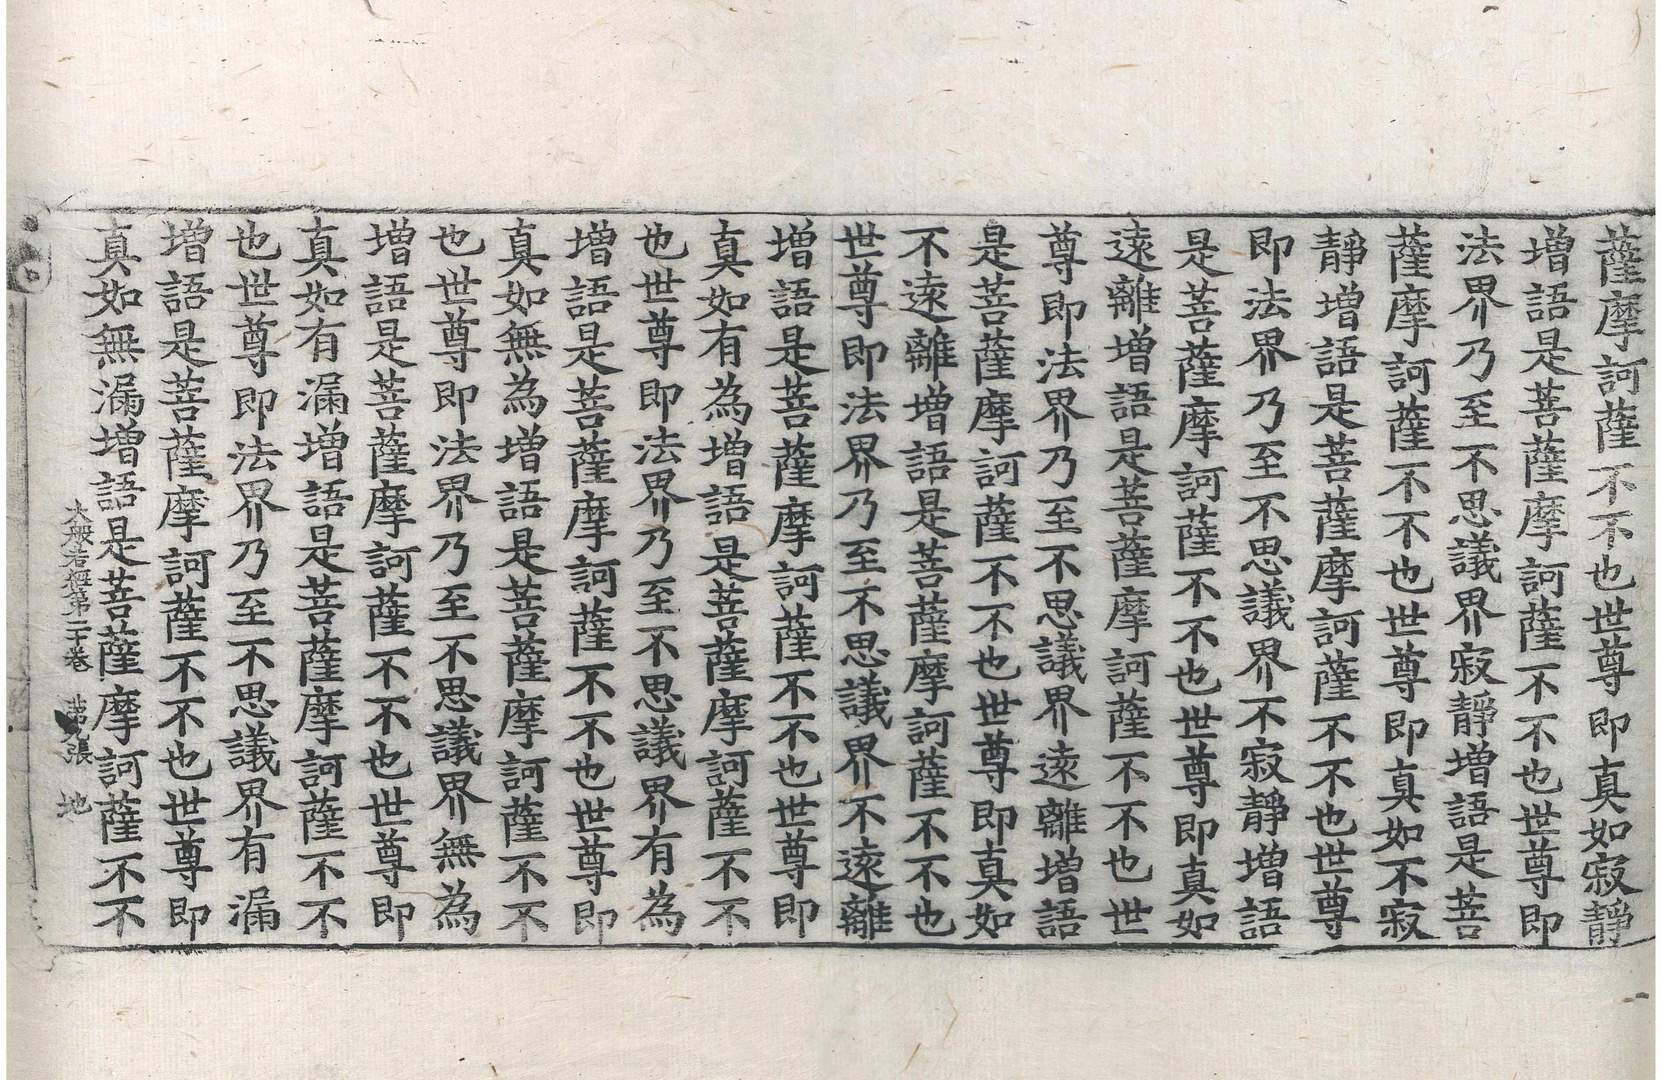 薩摩訶薩不不也世尊即真如寂靜
增語是菩薩摩訶薩不不也世尊即
法界乃至不思議界寂靜增語是菩
薩摩訶薩不不也世尊即真如不寂
靜增語是菩薩摩訶薩不不也世尊
即法界乃至不思議界不寂靜增語
是菩薩摩訶薩不不也世尊即真如
遠離增語是菩薩摩訶薩不不也世
尊即法界乃至不思議界遠離增語
是菩薩摩訶薩不不也世尊即真如
不遠離增語是菩薩摩訶薩不不也
世尊即法界乃至不思議界不遠離
增語是菩薩摩訶薩不不也世尊即
真如有為增語是菩薩摩訶薩不不
也世尊即法界乃至不思議界有為
增語是菩薩摩訶薩不不也世尊即
真如無為增語是菩薩摩訶薩不不
也世尊即法界乃至不思議界無為
增語是菩薩摩訶薩不不也世尊即
真如有漏增語是菩薩摩訶薩不不
也世尊即法界乃至不思議界有漏
增語是菩薩摩訶薩不不也世尊即
真如無漏增語是菩薩摩訶薩不不
大般若經第二十卷 第張 地